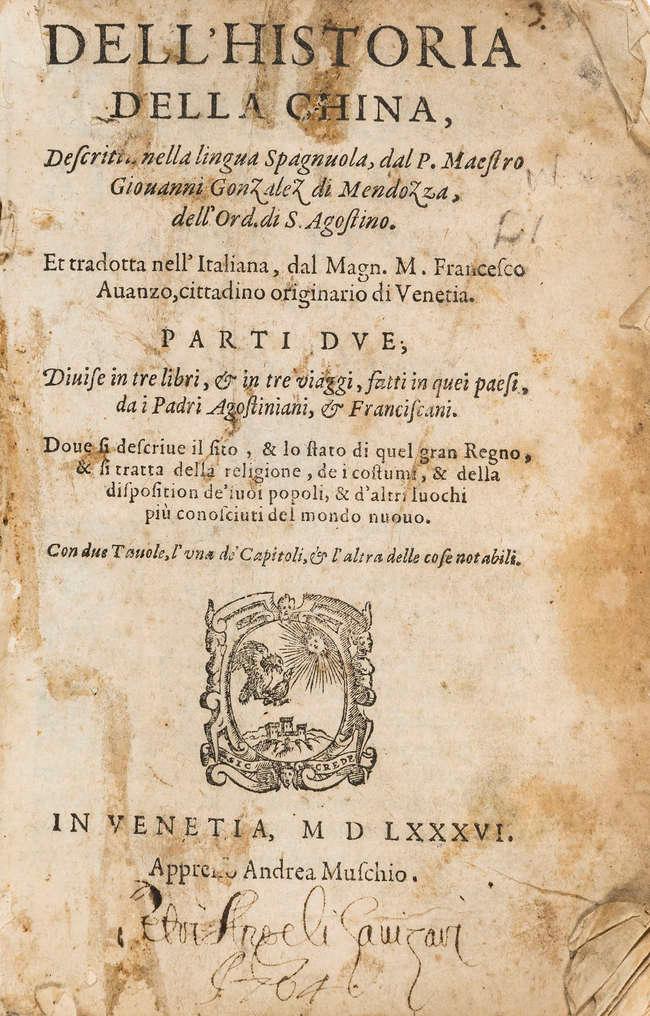 DELL'HISTORIA
DELLA CHINA,
Descritta nella lingua Spagnuola, dal P. Maestro
Giouanni Gonzalez di Mendozza,
dell'Ord. di S. Agostino.
Et tradotta nell'Italiana, dal Magn. M. Francesco
Auanzo, cittadino originario di Venetia.
PARTI DVE,
Diuise in tre libri, & in tre viaggi, fatti in quei paesi,
da i Padri Agostiniani, & Franciscani.
Doue si descriue il sito, & lo stato di quel gran Regno,
& si tratta della religione, de i costumi, & della
disposition de' suoi popoli, & d'altri luochi
più conosciuti del mondo nuouo.
Con due Tauole, l'vna de' Capitoli, & l'altra delle cose notabili.
SIC CREDE
IN VENETIA, M D LXXXVI.
Appresso Andrea Muschio.
Petri Angeli